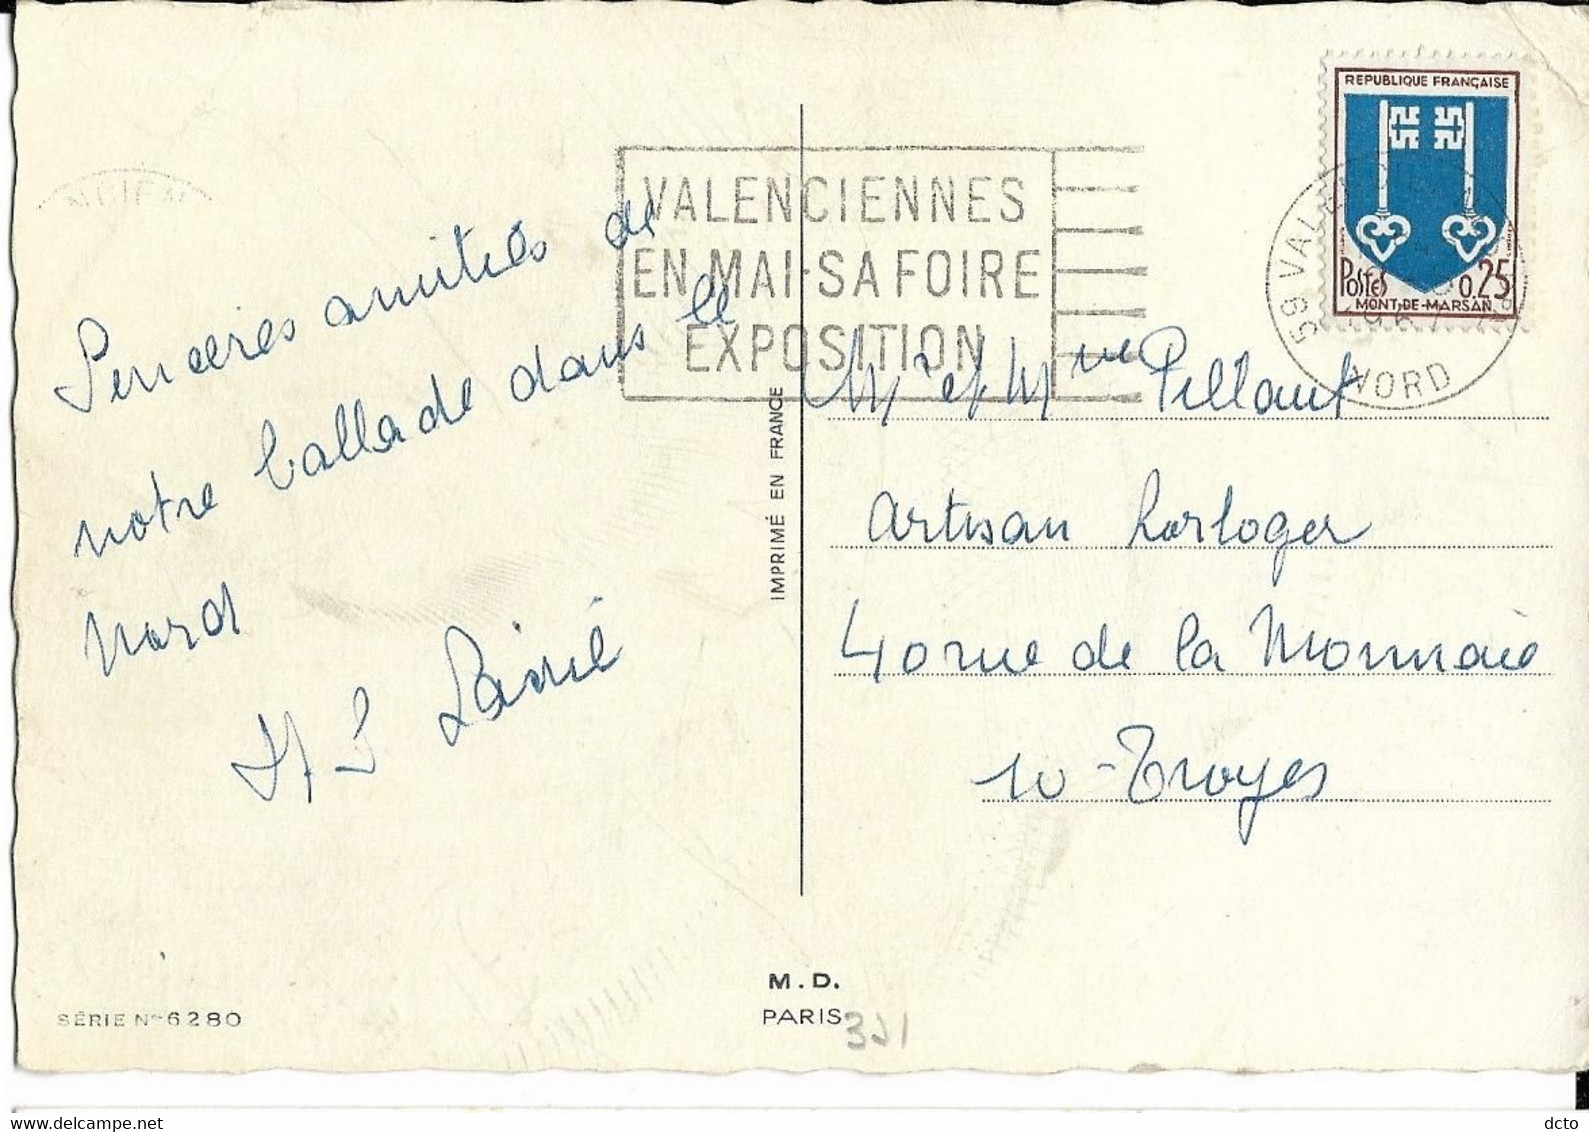 REPUBLIQUE FRANÇAISE
POSTES 0,25
MONT-DE-MARSAN
VALENCIENNES
EN MAI-SA FOIRE
EXPOSITION
59 VALENCIENNES
NORD
Sincères amitiés de
notre ballade dans le
Nord
IMPRIMÉ EN FRANCE
Mr et Mme Pillaut
artisan horloger
40 rue de la Monnaie
10 - Troyes
SÉRIE No 6280
M.D.
PARIS
delcampe.net
dcto